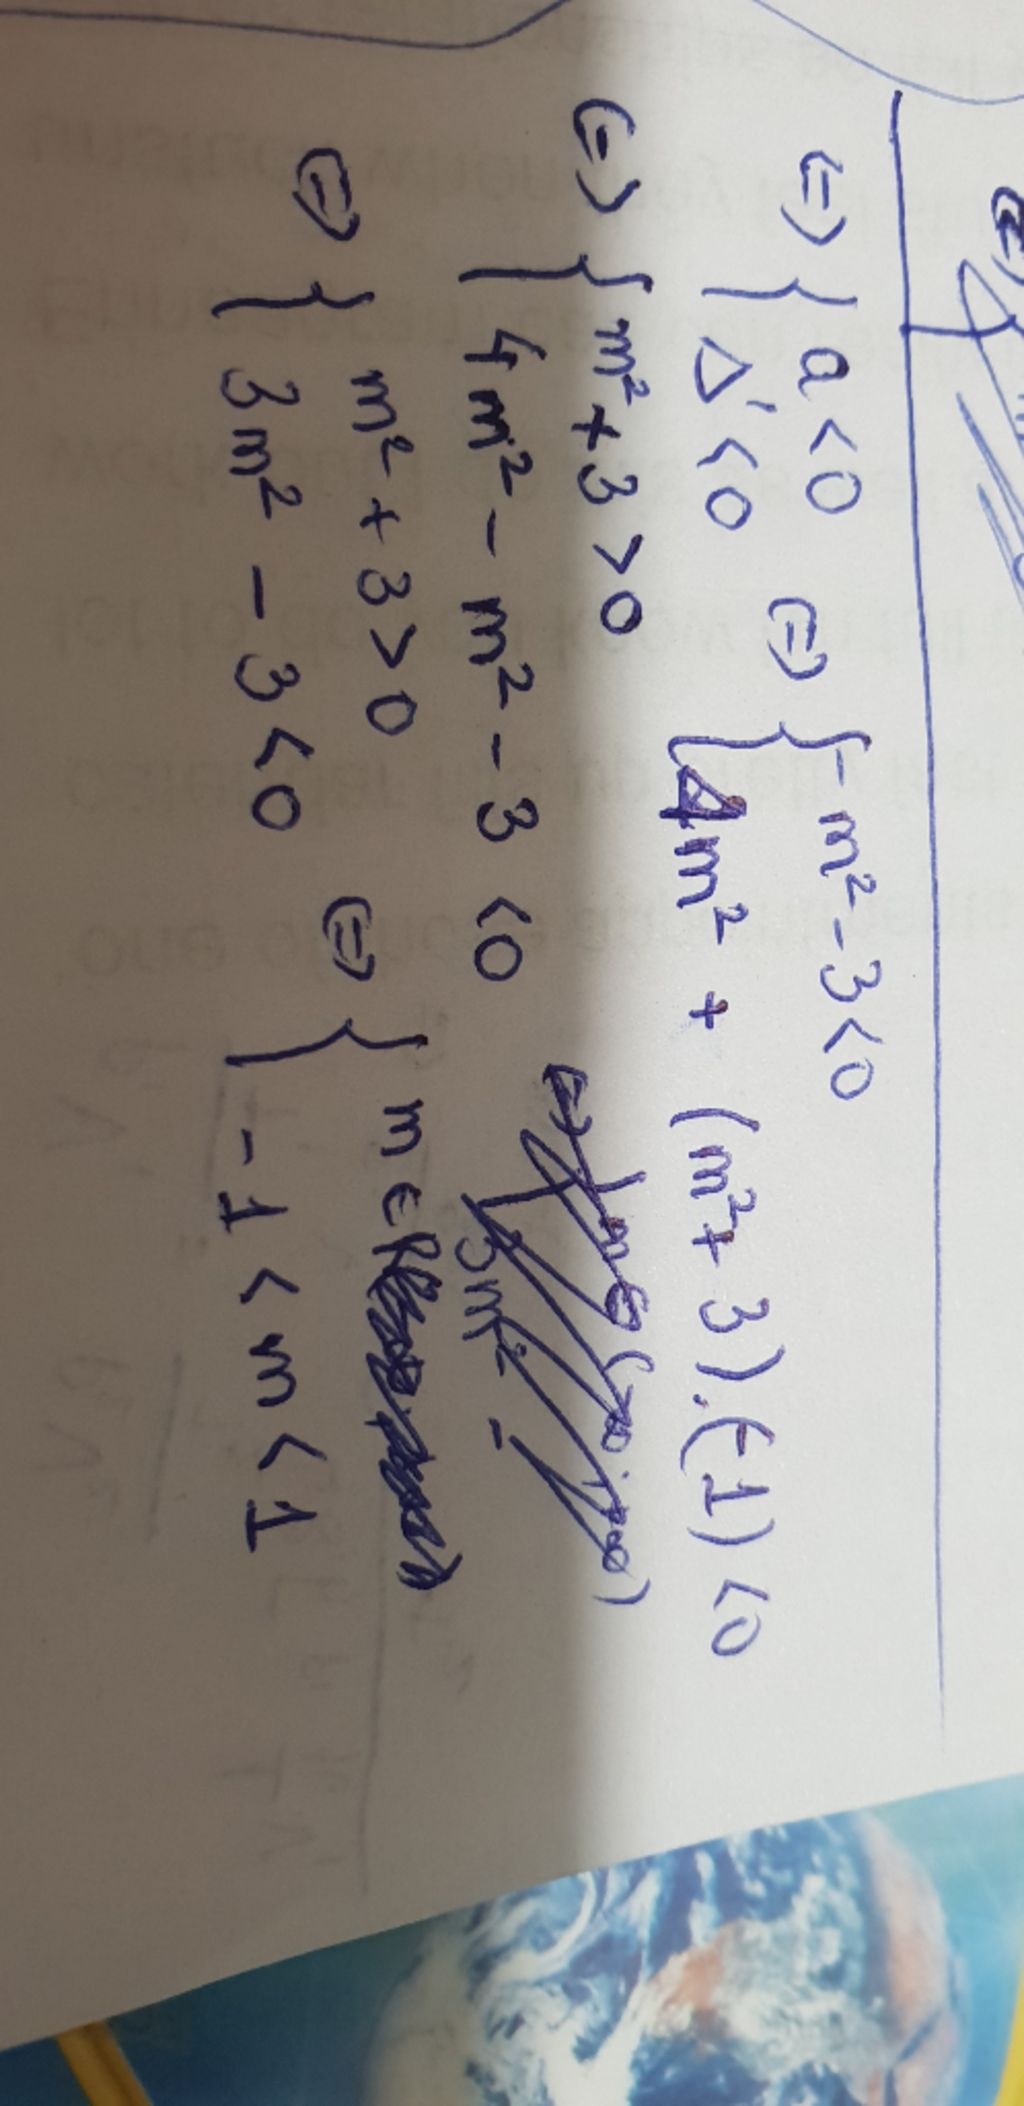 (=) { a < 0 (=) { -m² - 3 < 0
Δ' < 0 4m² + (m² + 3).(-1) < 0
(=) { m² + 3 > 0
4m² - m² - 3 < 0
(=) { m² + 3 > 0 (=) { m ∈ R
3m² - 3 < 0 -1 < m < 1